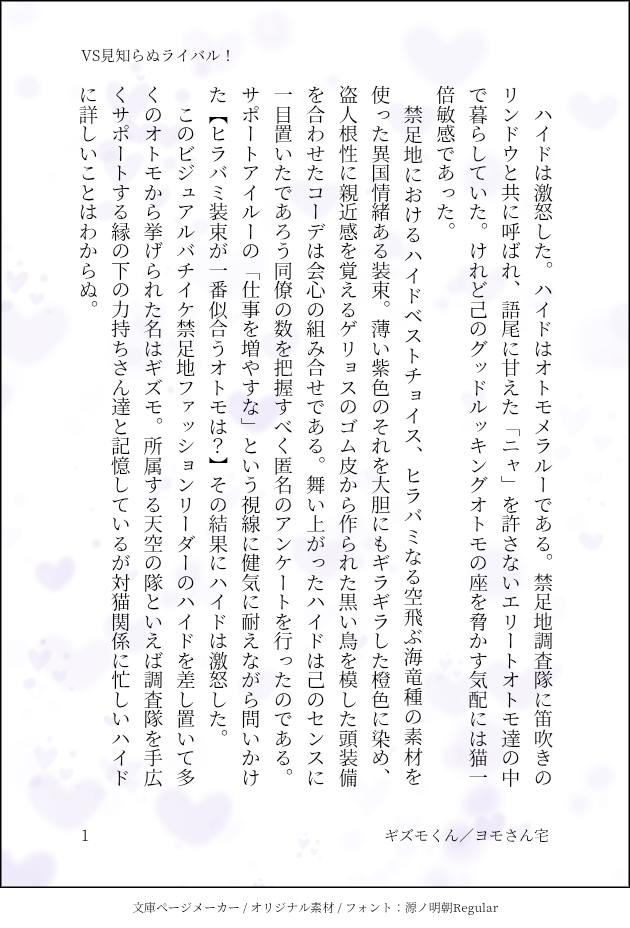 VS見知らぬライバル！
　ハイドは激怒した。ハイドはオトモメラルーである。禁足地調査隊に笛吹きの
リンドウと共に呼ばれ、語尾に甘えた「ニャ」を許さないエリートオトモ達の中
で暮らしていた。けれど己のグッドルッキングオトモの座を脅かす気配には猫一
倍敏感であった。
　禁足地におけるハイドベストチョイス、ヒラバミなる空飛ぶ海竜種の素材を
使った異国情緒ある装束。薄い紫色のそれを大胆にもギラギラした橙色に染め、
盗人根性に親近感を覚えるゲリョスのゴム皮から作られた黒い鳥を模した頭装備
を合わせたコーデは会心の組み合せである。舞い上がったハイドは己のセンスに
一目置いたであろう同僚の数を把握すべく匿名のアンケートを行ったのである。
サポートアイルーの「仕事を増やすな」という視線に健気に耐えながら問いかけ
た【ヒラバミ装束が一番似合うオトモは？】その結果にハイドは激怒した。
　このビジュアルバチイケ禁足地ファッションリーダーのハイドを差し置いて多
くのオトモから挙げられた名はギズモ。所属する天空の隊といえば調査隊を手広
くサポートする縁の下の力持ちさん達と記憶しているが対猫関係に忙しいハイド
に詳しいことはわからぬ。
1
ギズモくん／ヨモさん宅
文庫ページメーカー / オリジナル素材 / フォント：源ノ明朝Regular